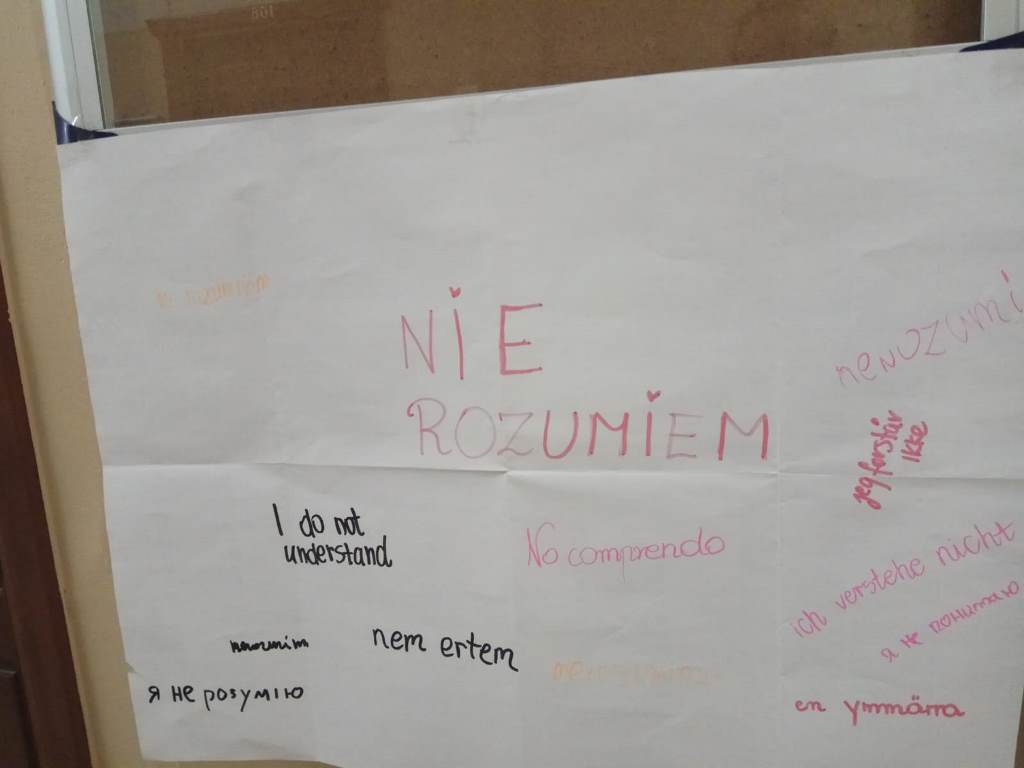 NIE
ROZUMIEM
nerozumi
jeg forstår
ikke
I do not
understand
No comprendo
ich verstehe nicht
nem ertem
я не розумію
en ymmärrä